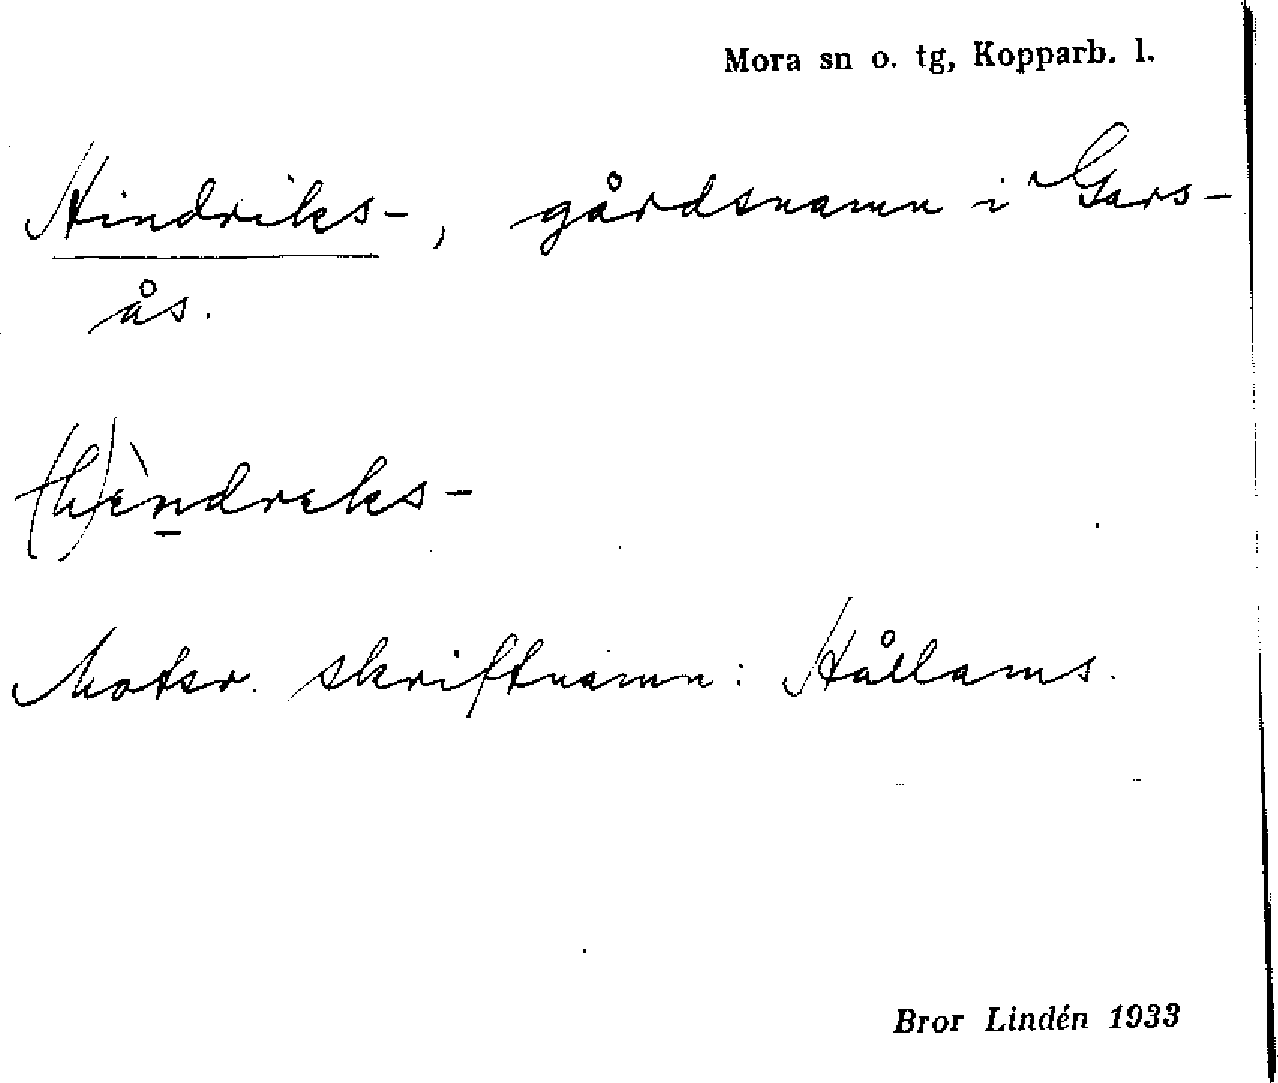 Mora sn o. tg, Kopparb. l.
Hindriks-, gårdsnamn i Gars-
ås.
(h)èndreks-
Motsv. skriftnamn: Hållams.
Bror Lindén 1933